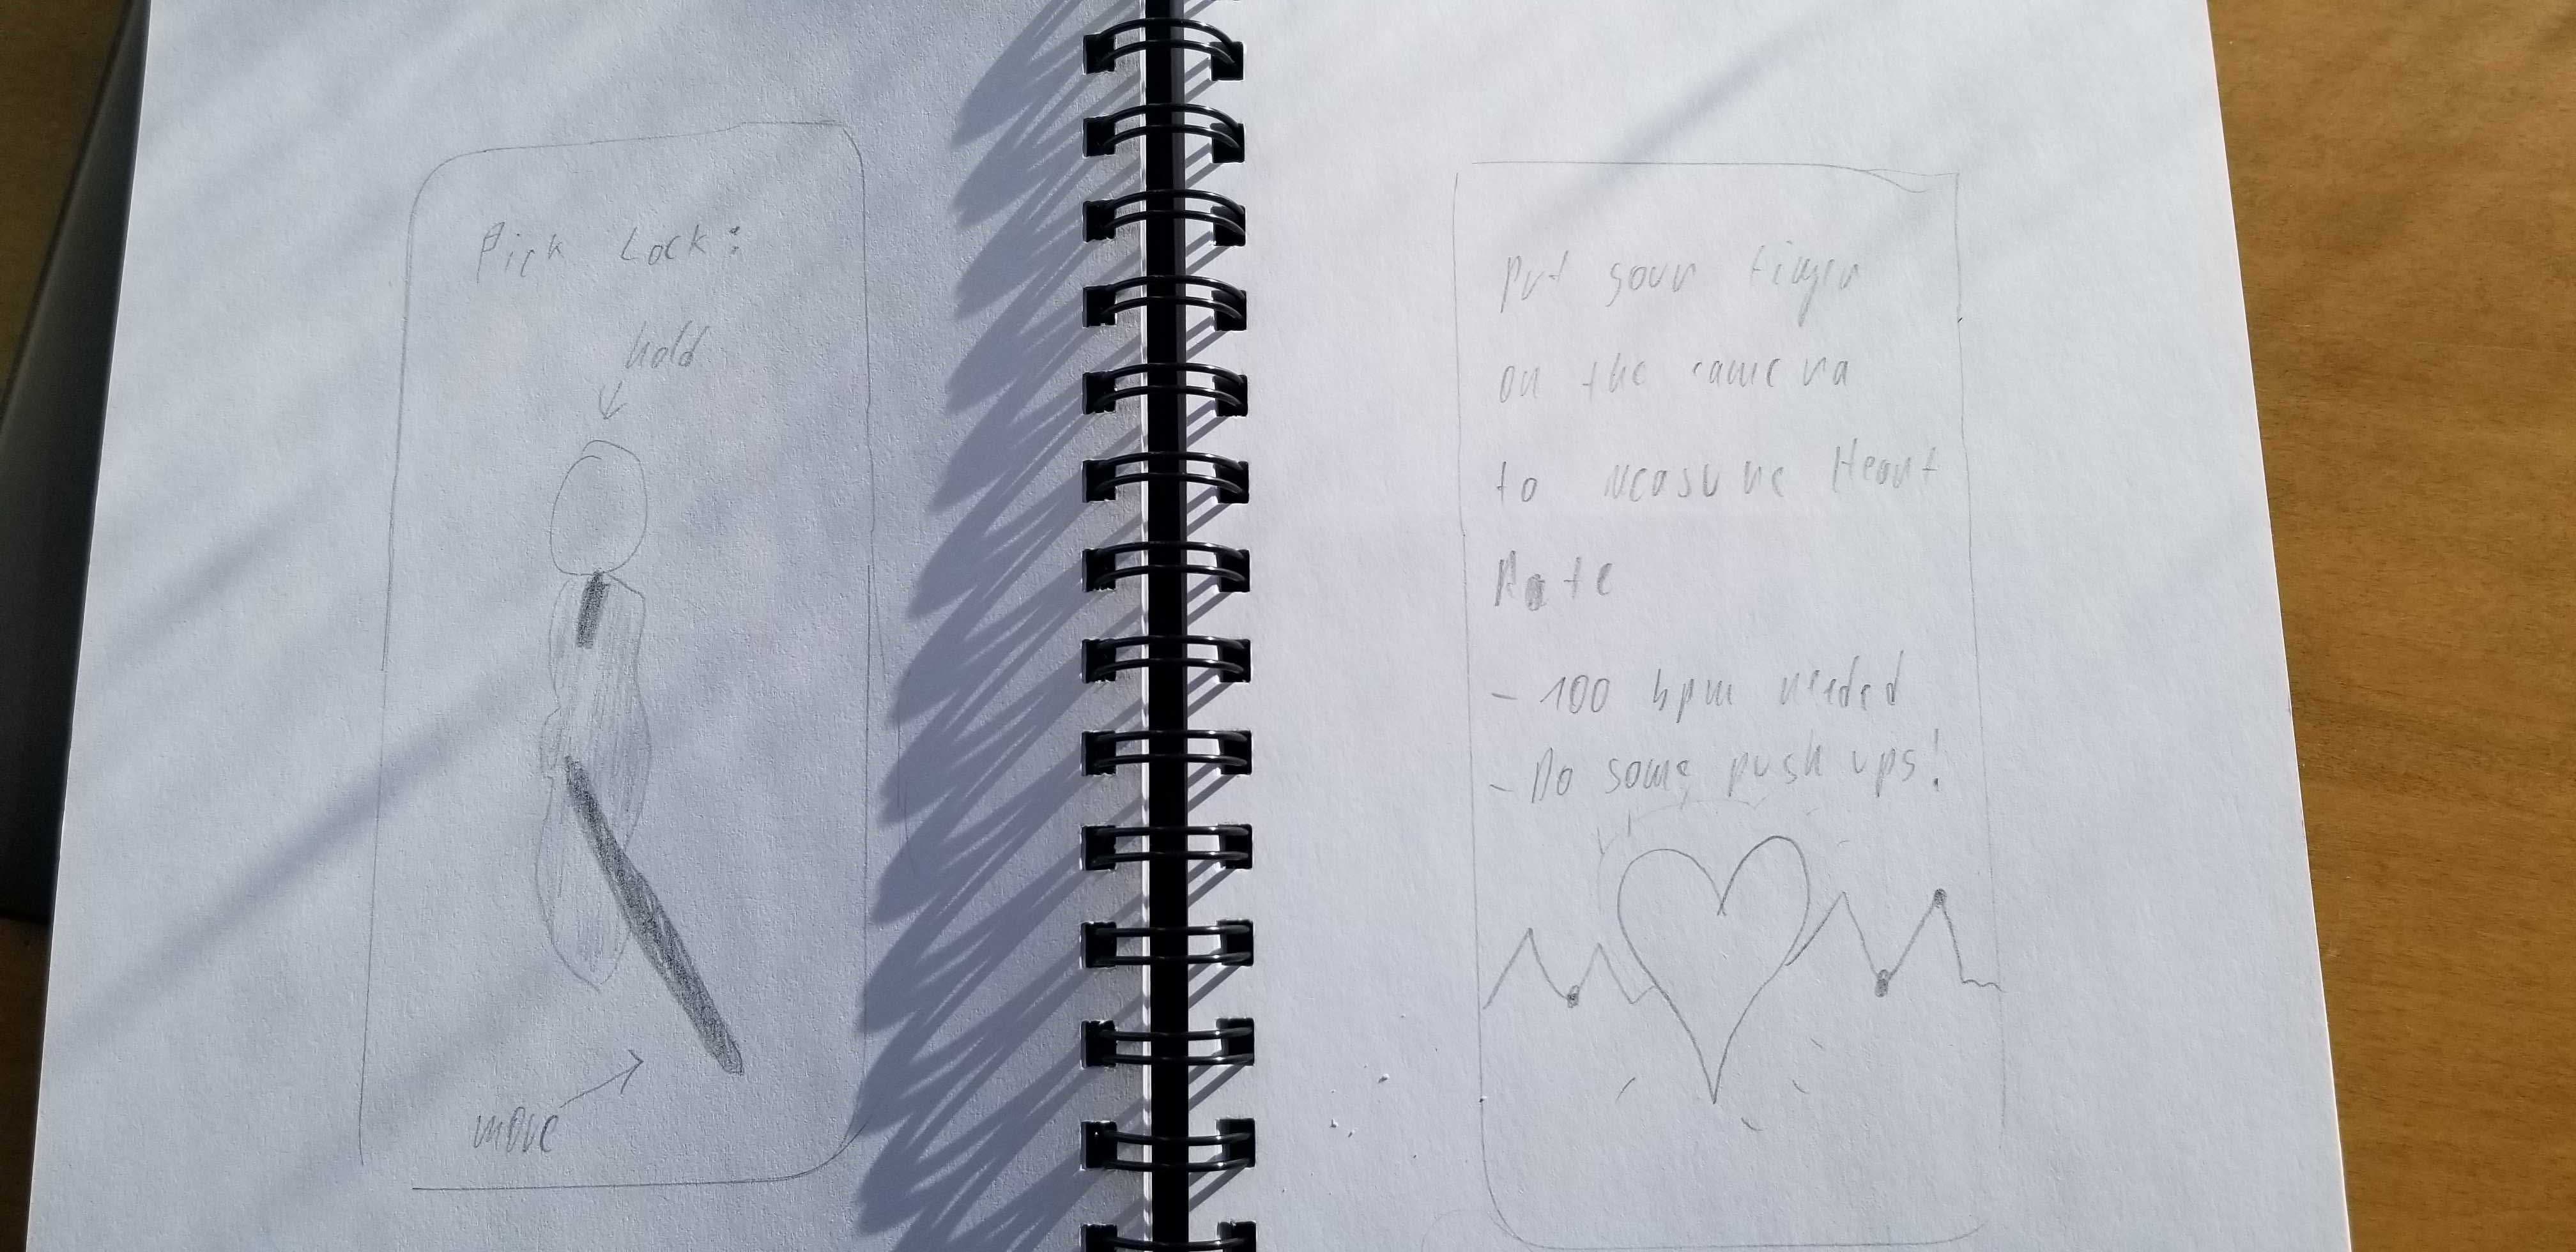 Pick Lock:
hold
move
Put your finger
on the camera
to measure Heart
Rate
- 100 bpm needed
- Do some push ups!